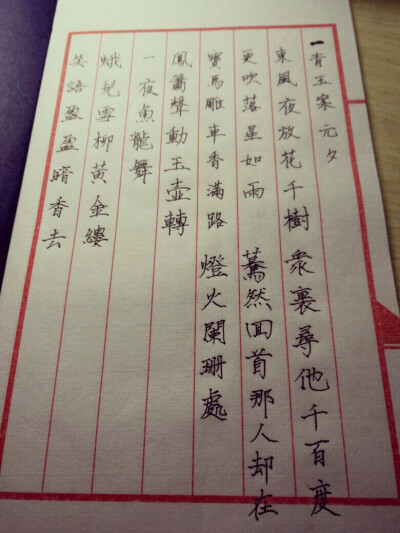 一青玉案 元夕
東風夜放花千樹
更吹落星如雨
寶馬雕車香滿路
鳳簫聲動玉壺轉
一夜魚龍舞
蛾兒雪柳黃金縷
笑語盈盈暗香去
衆裏尋他千百度
驀然回首那人却在
燈火闌珊處